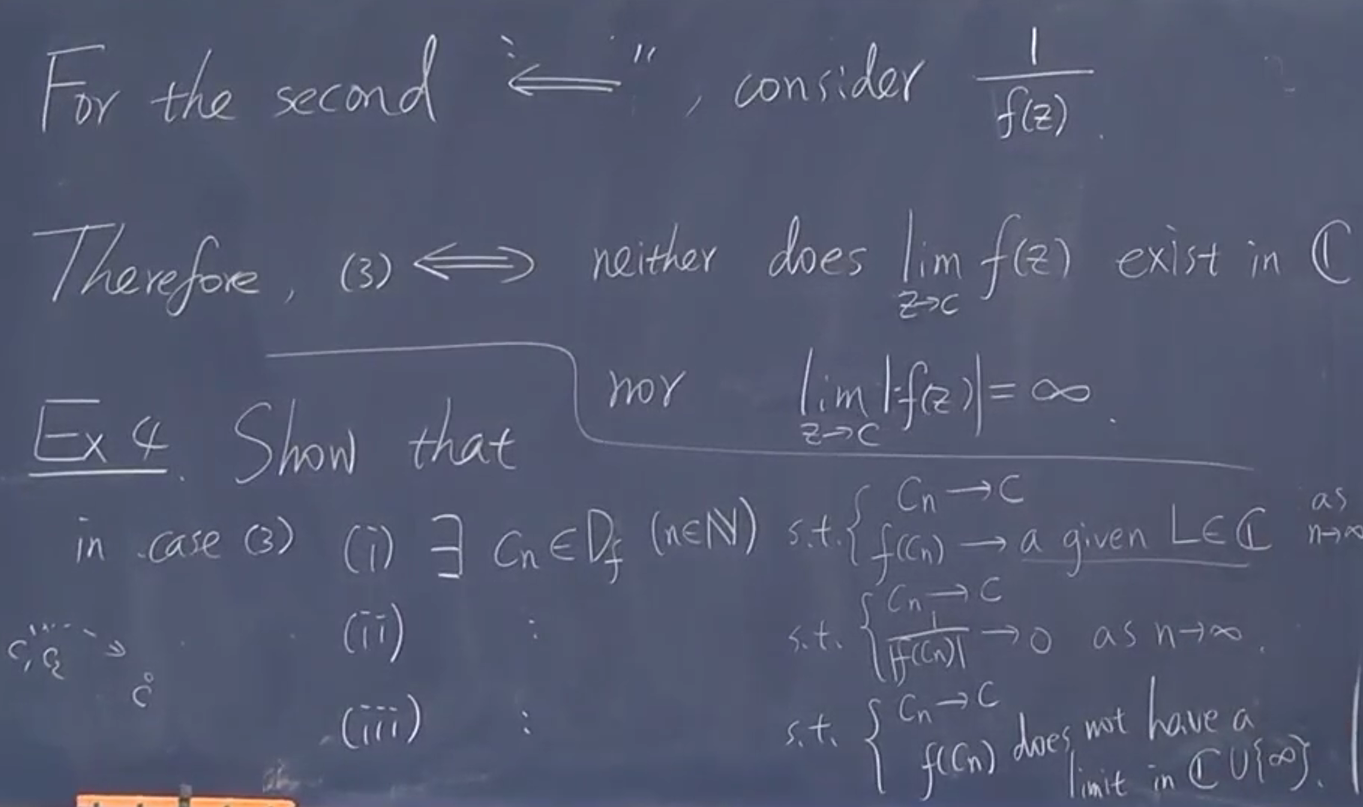 For the second "⟸", consider 1/f(z).
Therefore, (3) ⟺ neither does lim_{z→c} f(z) exist in ℂ
nor lim_{z→c} |f(z)| = ∞.
Ex 4. Show that
in case (3) (i) ∃ Cn ∈ D_f (n∈ℕ) s.t. { Cn → C
f(Cn) → a given L∈ℂ as n→∞
(ii) : s.t. { Cn → C
1/|f(Cn)| → 0 as n→∞.
(iii) : s.t. { Cn → C
f(Cn) does not have a
limit in ℂ∪{∞}.
C1 C2
C